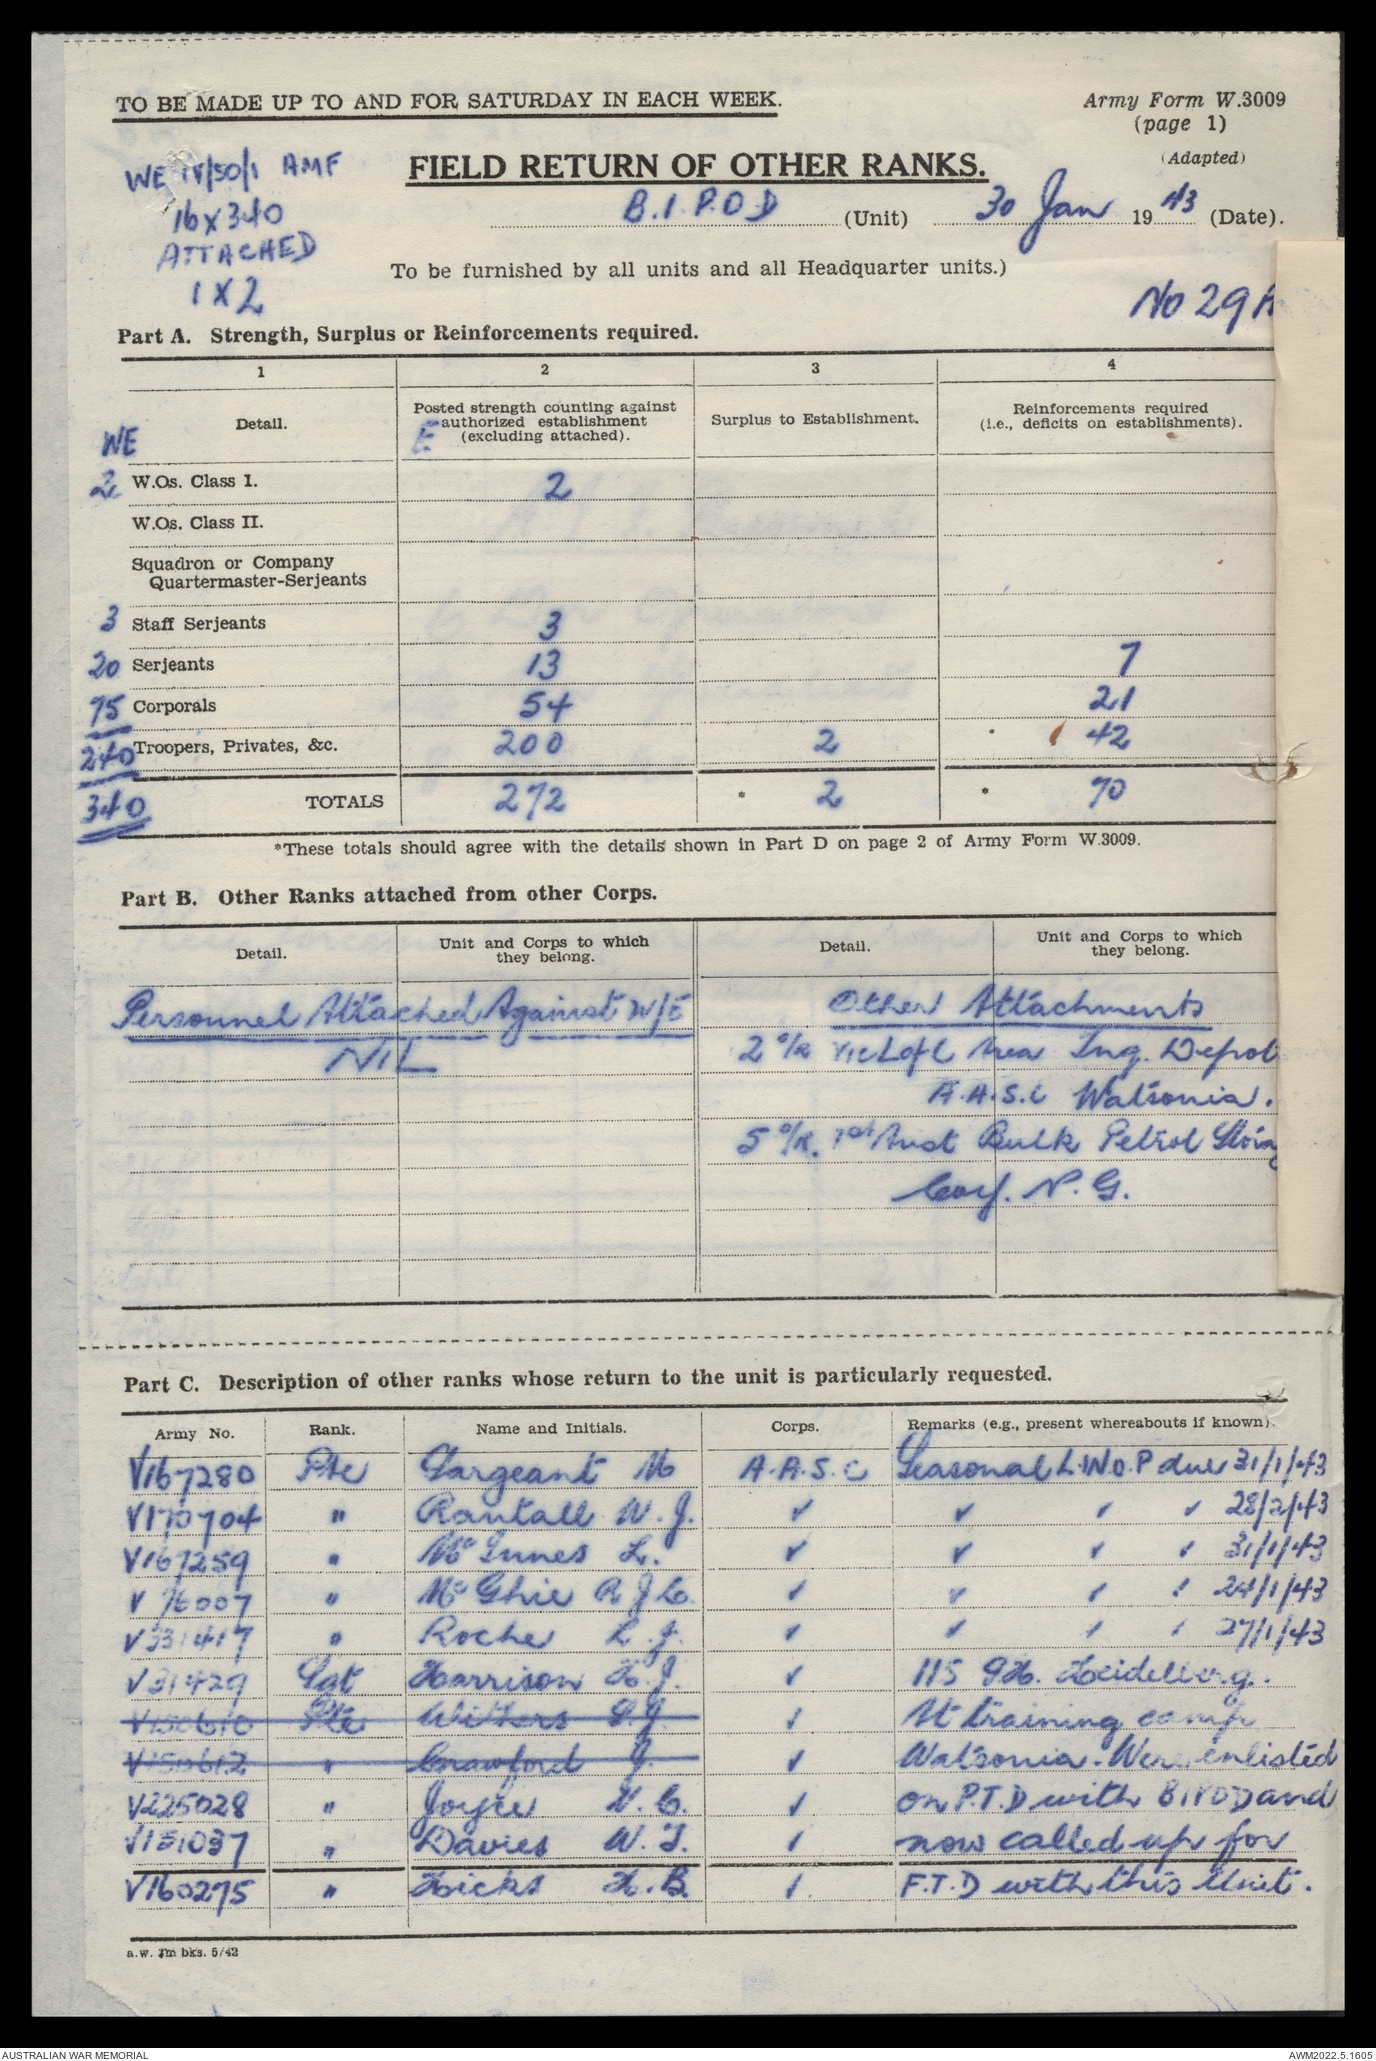 TO BE MADE UP TO AND FOR SATURDAY IN EACH WEEK.
Army Form W.3009
(page 1)
(Adapted)
WE IV/50/1 AMF
16 x 340
ATTACHED
1 x 2
FIELD RETURN OF OTHER RANKS.
B.I.P.O.D (Unit) 30 Jan 1943 (Date).
To be furnished by all units and all Headquarter units.)
No 29A
Part A. Strength, Surplus or Reinforcements required.
1 2 3 4
WE Detail. Posted strength counting against authorized establishment (excluding attached). E Surplus to Establishment. Reinforcements required (i.e., deficits on establishments).
2 W.Os. Class I. 2
W.Os. Class II.
Squadron or Company
Quartermaster-Serjeants
3 Staff Serjeants 3
20 Serjeants 13 7
75 Corporals 54 21
240 Troopers, Privates, &c. 200 2 42
340 TOTALS 272 * 2 * 70
*These totals should agree with the details shown in Part D on page 2 of Army Form W.3009.
Part B. Other Ranks attached from other Corps.
Detail. Unit and Corps to which they belong. Detail. Unit and Corps to which they belong.
Personnel Attached Against W/E
NIL
Other Attachments
2 O/R Vic L of C Area Trg. Depot
A.A.S.C Watsonia.
5 O/R. 1st Aust Bulk Petrol
Coy. N.G.
Part C. Description of other ranks whose return to the unit is particularly requested.
Army No. Rank. Name and Initials. Corps. Remarks (e.g., present whereabouts if known).
V167280 Pte Sargeant M A.A.S.C Seasonal L.W.O.P due 31/1/43
V170704 " Rantall W.J. 28/2/43
V167259 " McInnes L. 31/1/43
V 76007 " McGhie R J C. 24/1/43
V331417 " Roche L.J. 27/1/43
V31429 Sgt Harrison H.J. 115 GH. Heidelberg.
V150610 Pte At training camp
V150612 " Crawford J. Watsonia. Were enlisted
V225028 " Joyce W.C. on P.T.D with BIPOD and
V151037 " Davies W.T. now called up for
V160275 " Hicks H.B. F.T.D with this Unit.
a.w. 7m bks. 5/42
AUSTRALIAN WAR MEMORIAL
AWM2022.5.1605